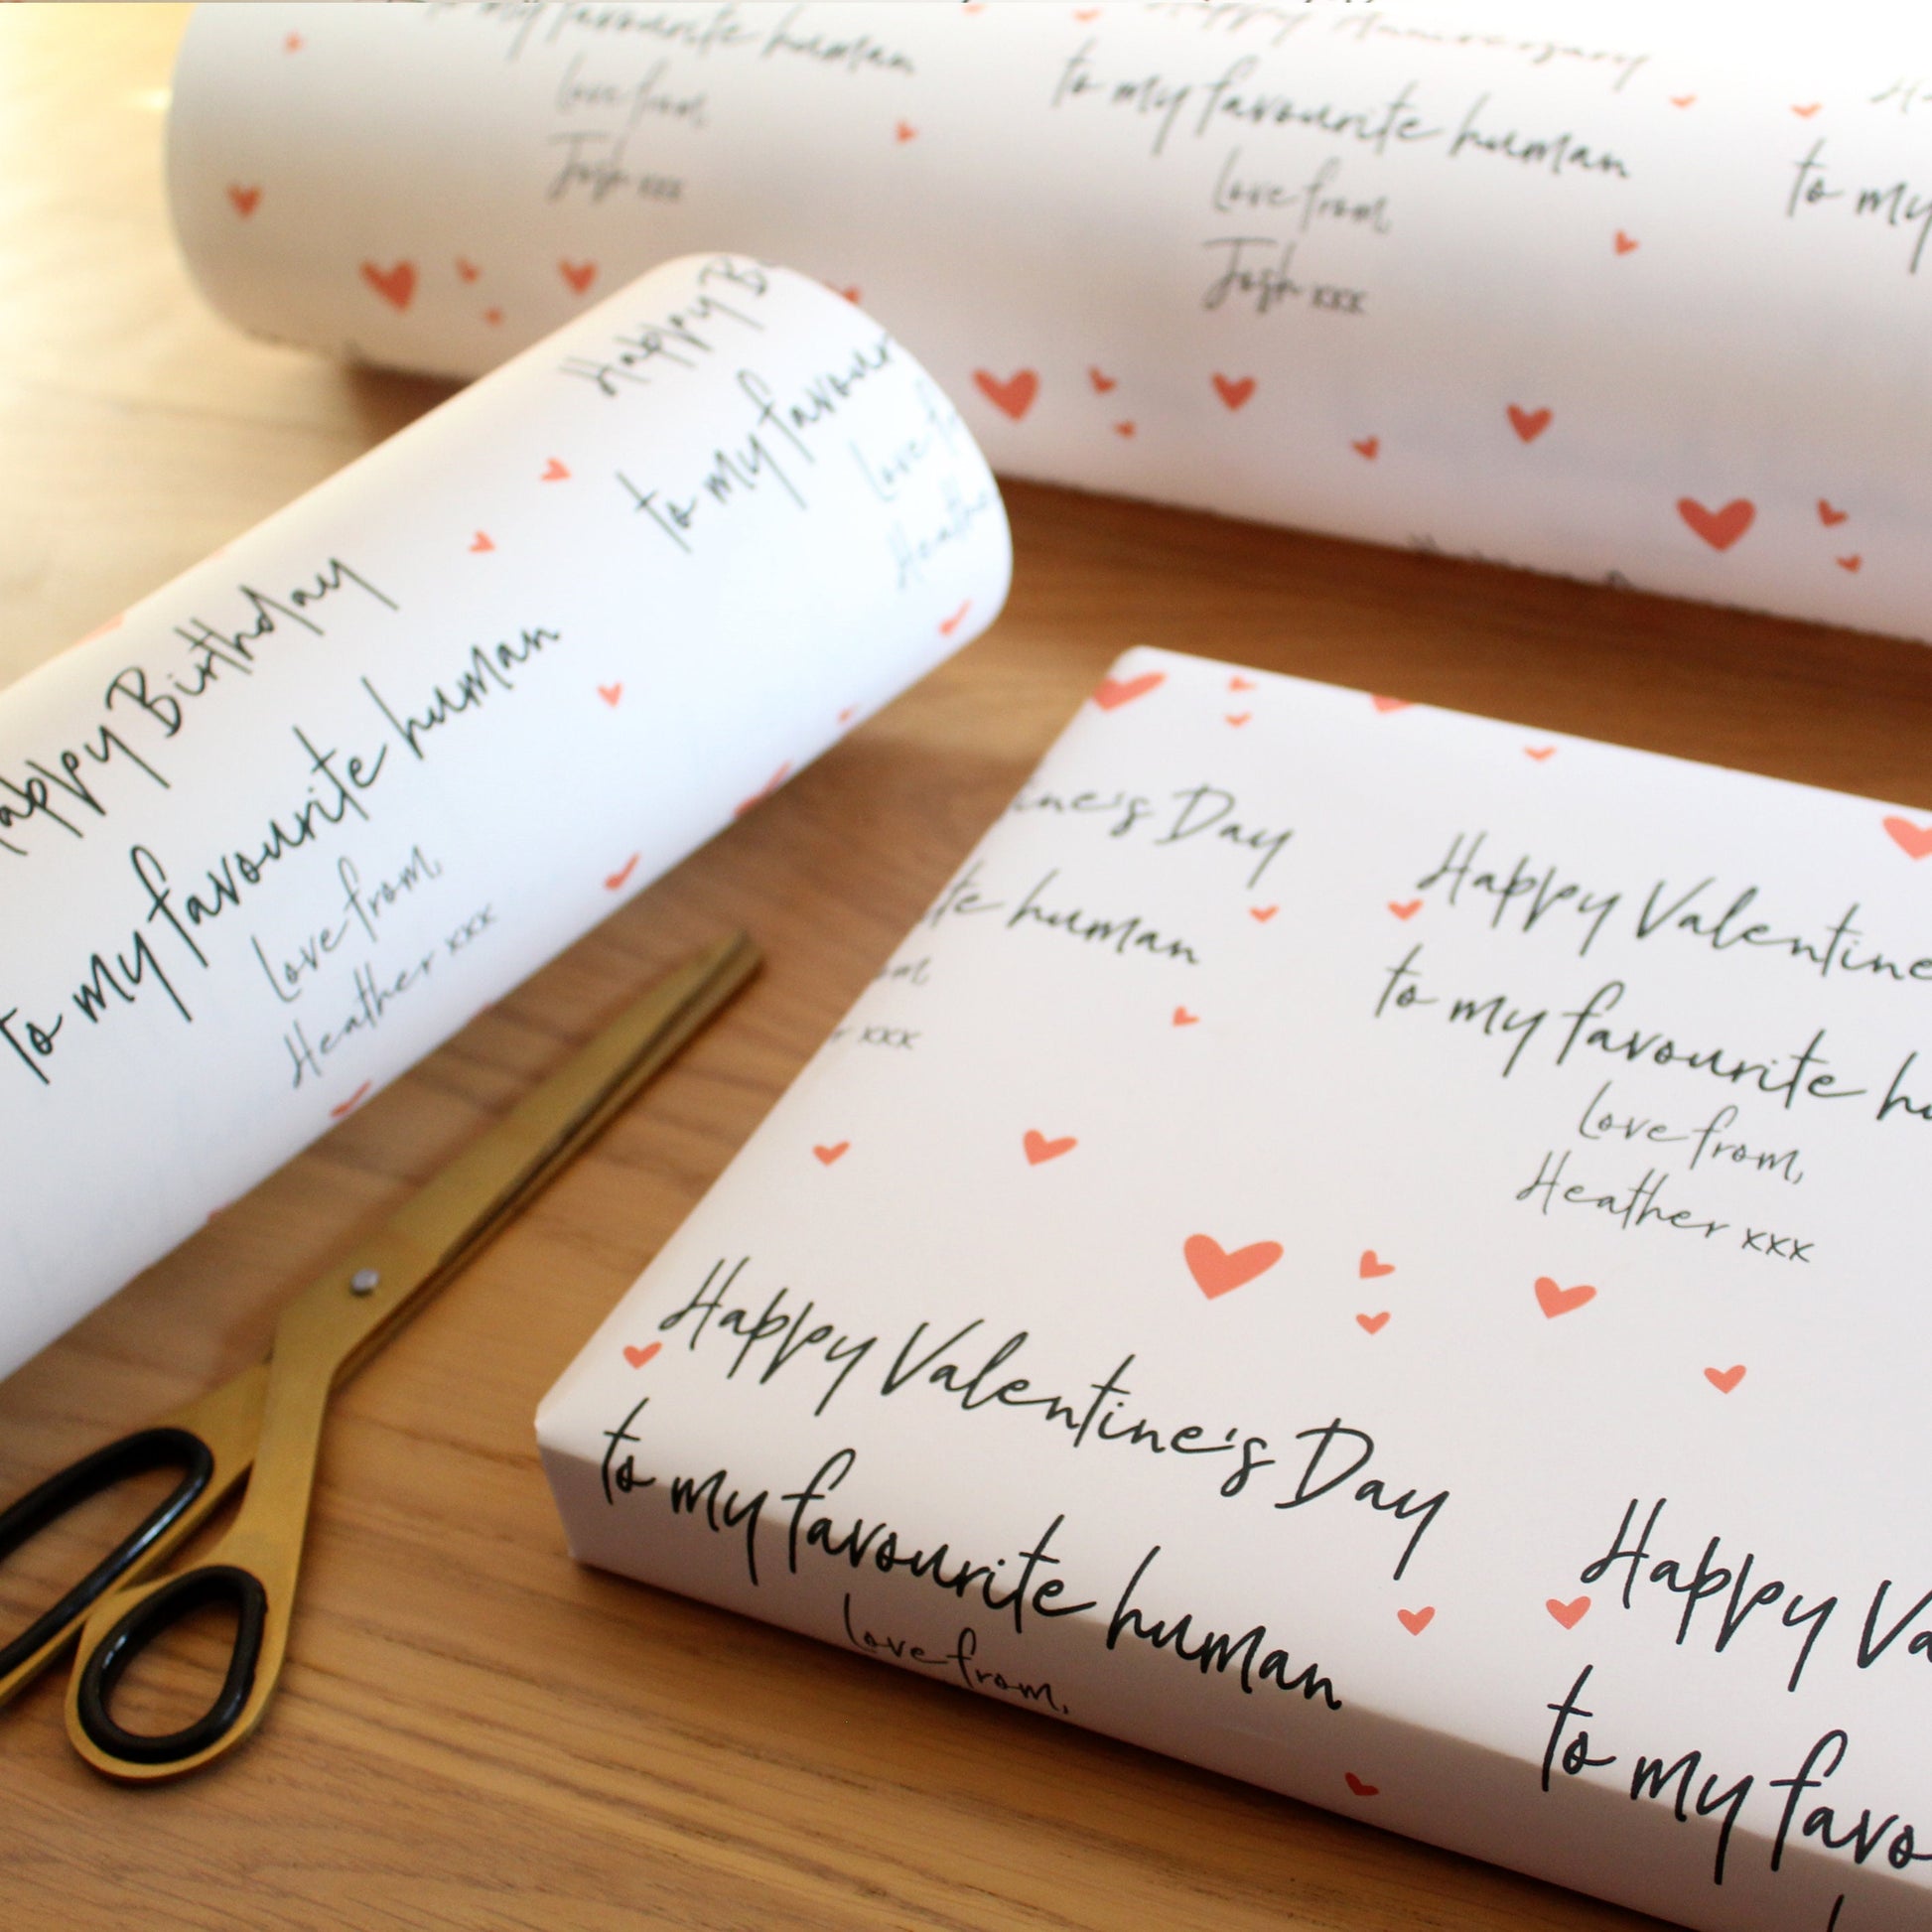 to my favourite human
Love from,
Josh xxx
Happy Anniversary
to my favourite human
Love from,
Josh xxx
to my
Happy B
to my favour
Love f
Heathe
Happy Birthday
to my favourite human
Love from,
Heather xxx
ine's Day
te human
om,
r xxx
Happy Valentine
to my favourite hu
Love from,
Heather xxx
Happy Valentine's Day
to my favourite human
Love from,
Happy Va
to my favo